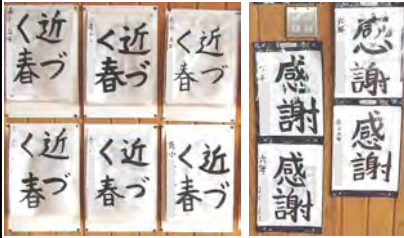 近づく春
近づく春
近づく春
近づく春
近づく春
近づく春
感謝
感謝
感謝
感謝
六年
六年